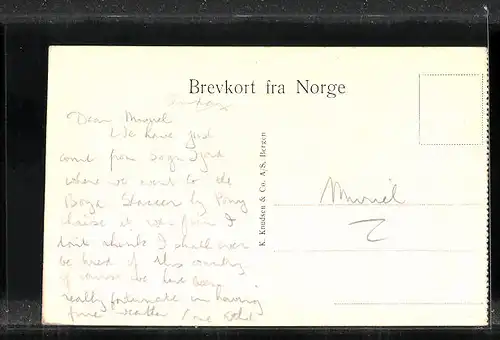 Brevkort fra Norge
Sunday
Dear Muriel
We have just
come from Sogn Fjord
where we went to the
Boya Glacier by Pony
chaise it was fun I
don't think I shall ever
be tired of this country
of course we have been
really fortunate in having
fine weather / one
K. Knudsen & Co. A/S. Bergen
Muriel